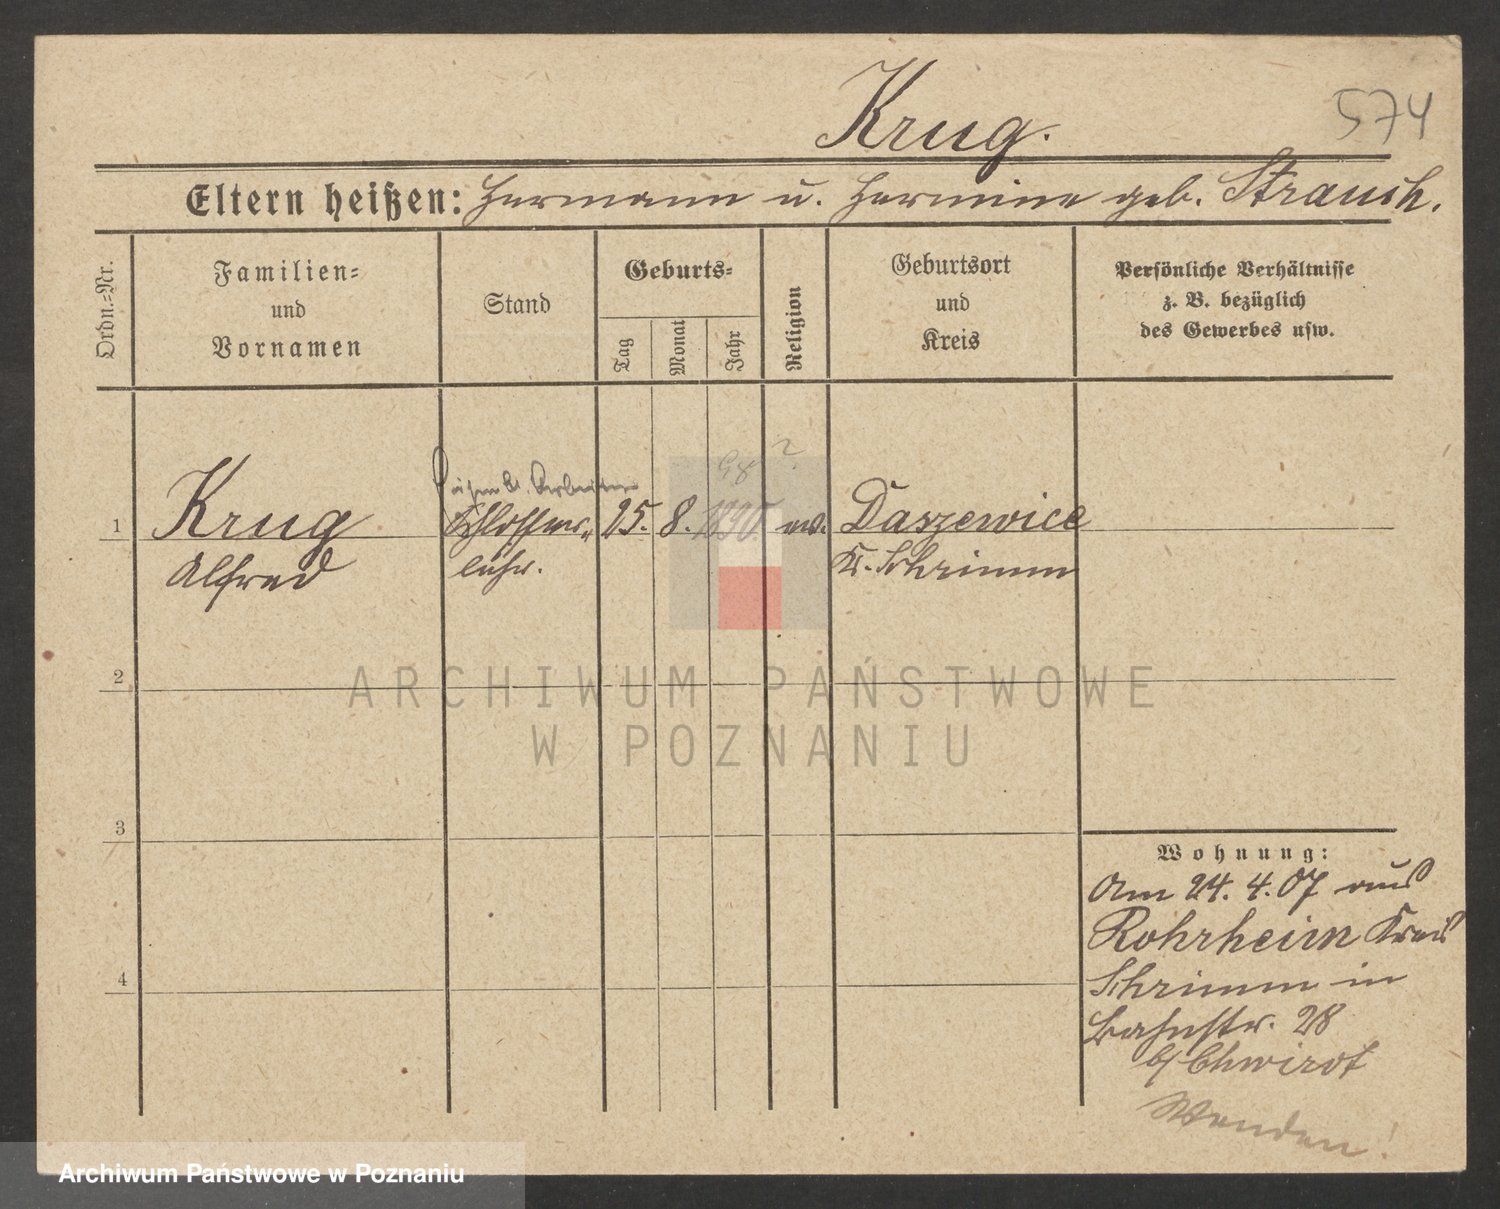 574
Krug.
Eltern heißen: Hermann u. Hermine geb. Strauch.
Ordn.=Nr.
Familien=
und
Vornamen
Stand
Geburts=
Tag
Monat
Jahr
Religion
Geburtsort
und
Kreis
Persönliche Verhältnisse
z. B. bezüglich
des Gewerbes usw.
98 ?
Arbeiter
1 Krug Schlosser= 25. 8. 1890 ev. Daszewice
Alfred lehr. Kr. Schrimm
2
ARCHIWUM PAŃSTWOWE
W POZNANIU
3
4
Wohnung:
Am 24. 4. 07 aus
Rohrheim Kreis
Schrimm in
Bahnstr. 28
b/ Chwirot
Wenden!
Archiwum Państwowe w Poznaniu